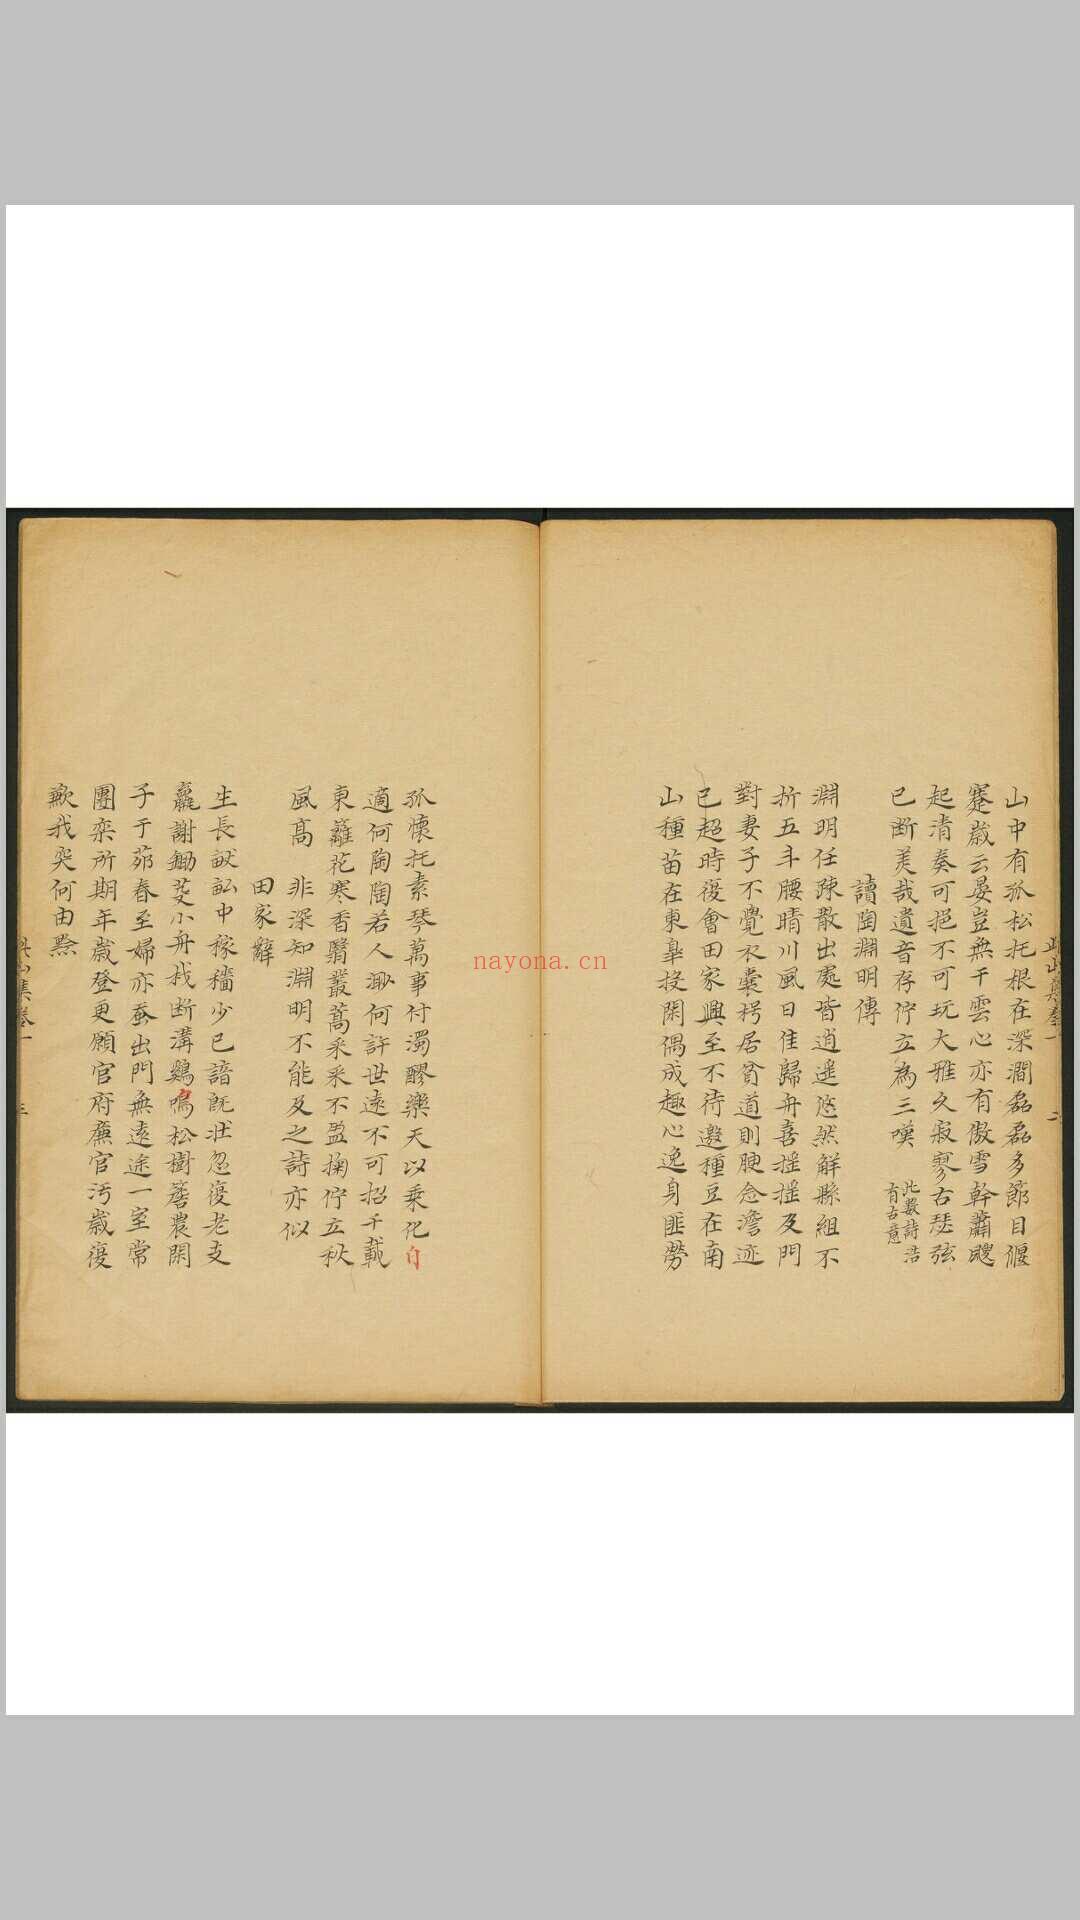 山中有孤松托根在深澗磊磊多節目偃
蹇歲云晏豈無干雲心亦有傲雪幹蕭颼
起清奏可挹不可玩大雅久寂寥古瑟弦
已断美哉遺音存佇立為三嘆 此數詩浩
有古意
讀陶淵明傳
淵明任疎散出處皆逍遥悠然觧縣組不
折五斗腰晴川風日佳歸舟喜摇摇及門
對妻子不覺衣囊枵居貧道則腴念澹迹
已超時復會田家興至不待邀種豆在南
山種苗在東臯投閑偶成趣心逸身匪勞
孤懐托素琴萬事付濁醪樂天以乗化自
適何陶陶若人渺何許世逺不可招千載
東籬花寒香翳叢蒿采采不盈掬佇立秋
風高 非深知淵明不能及之詩亦似
田家辭
生長畎畆中稼穡少已諳旣壯忽復老支
羸謝鋤芟小舟栰断溝鷄鳴松樹簷農閑
子于茒春至婦亦蚕出門無逺途一室常
團栾所期年歳登更願官府㢘官汚歳復
歉我突何由黔
此山集卷一 二
此山集卷一 三
nayona.cn